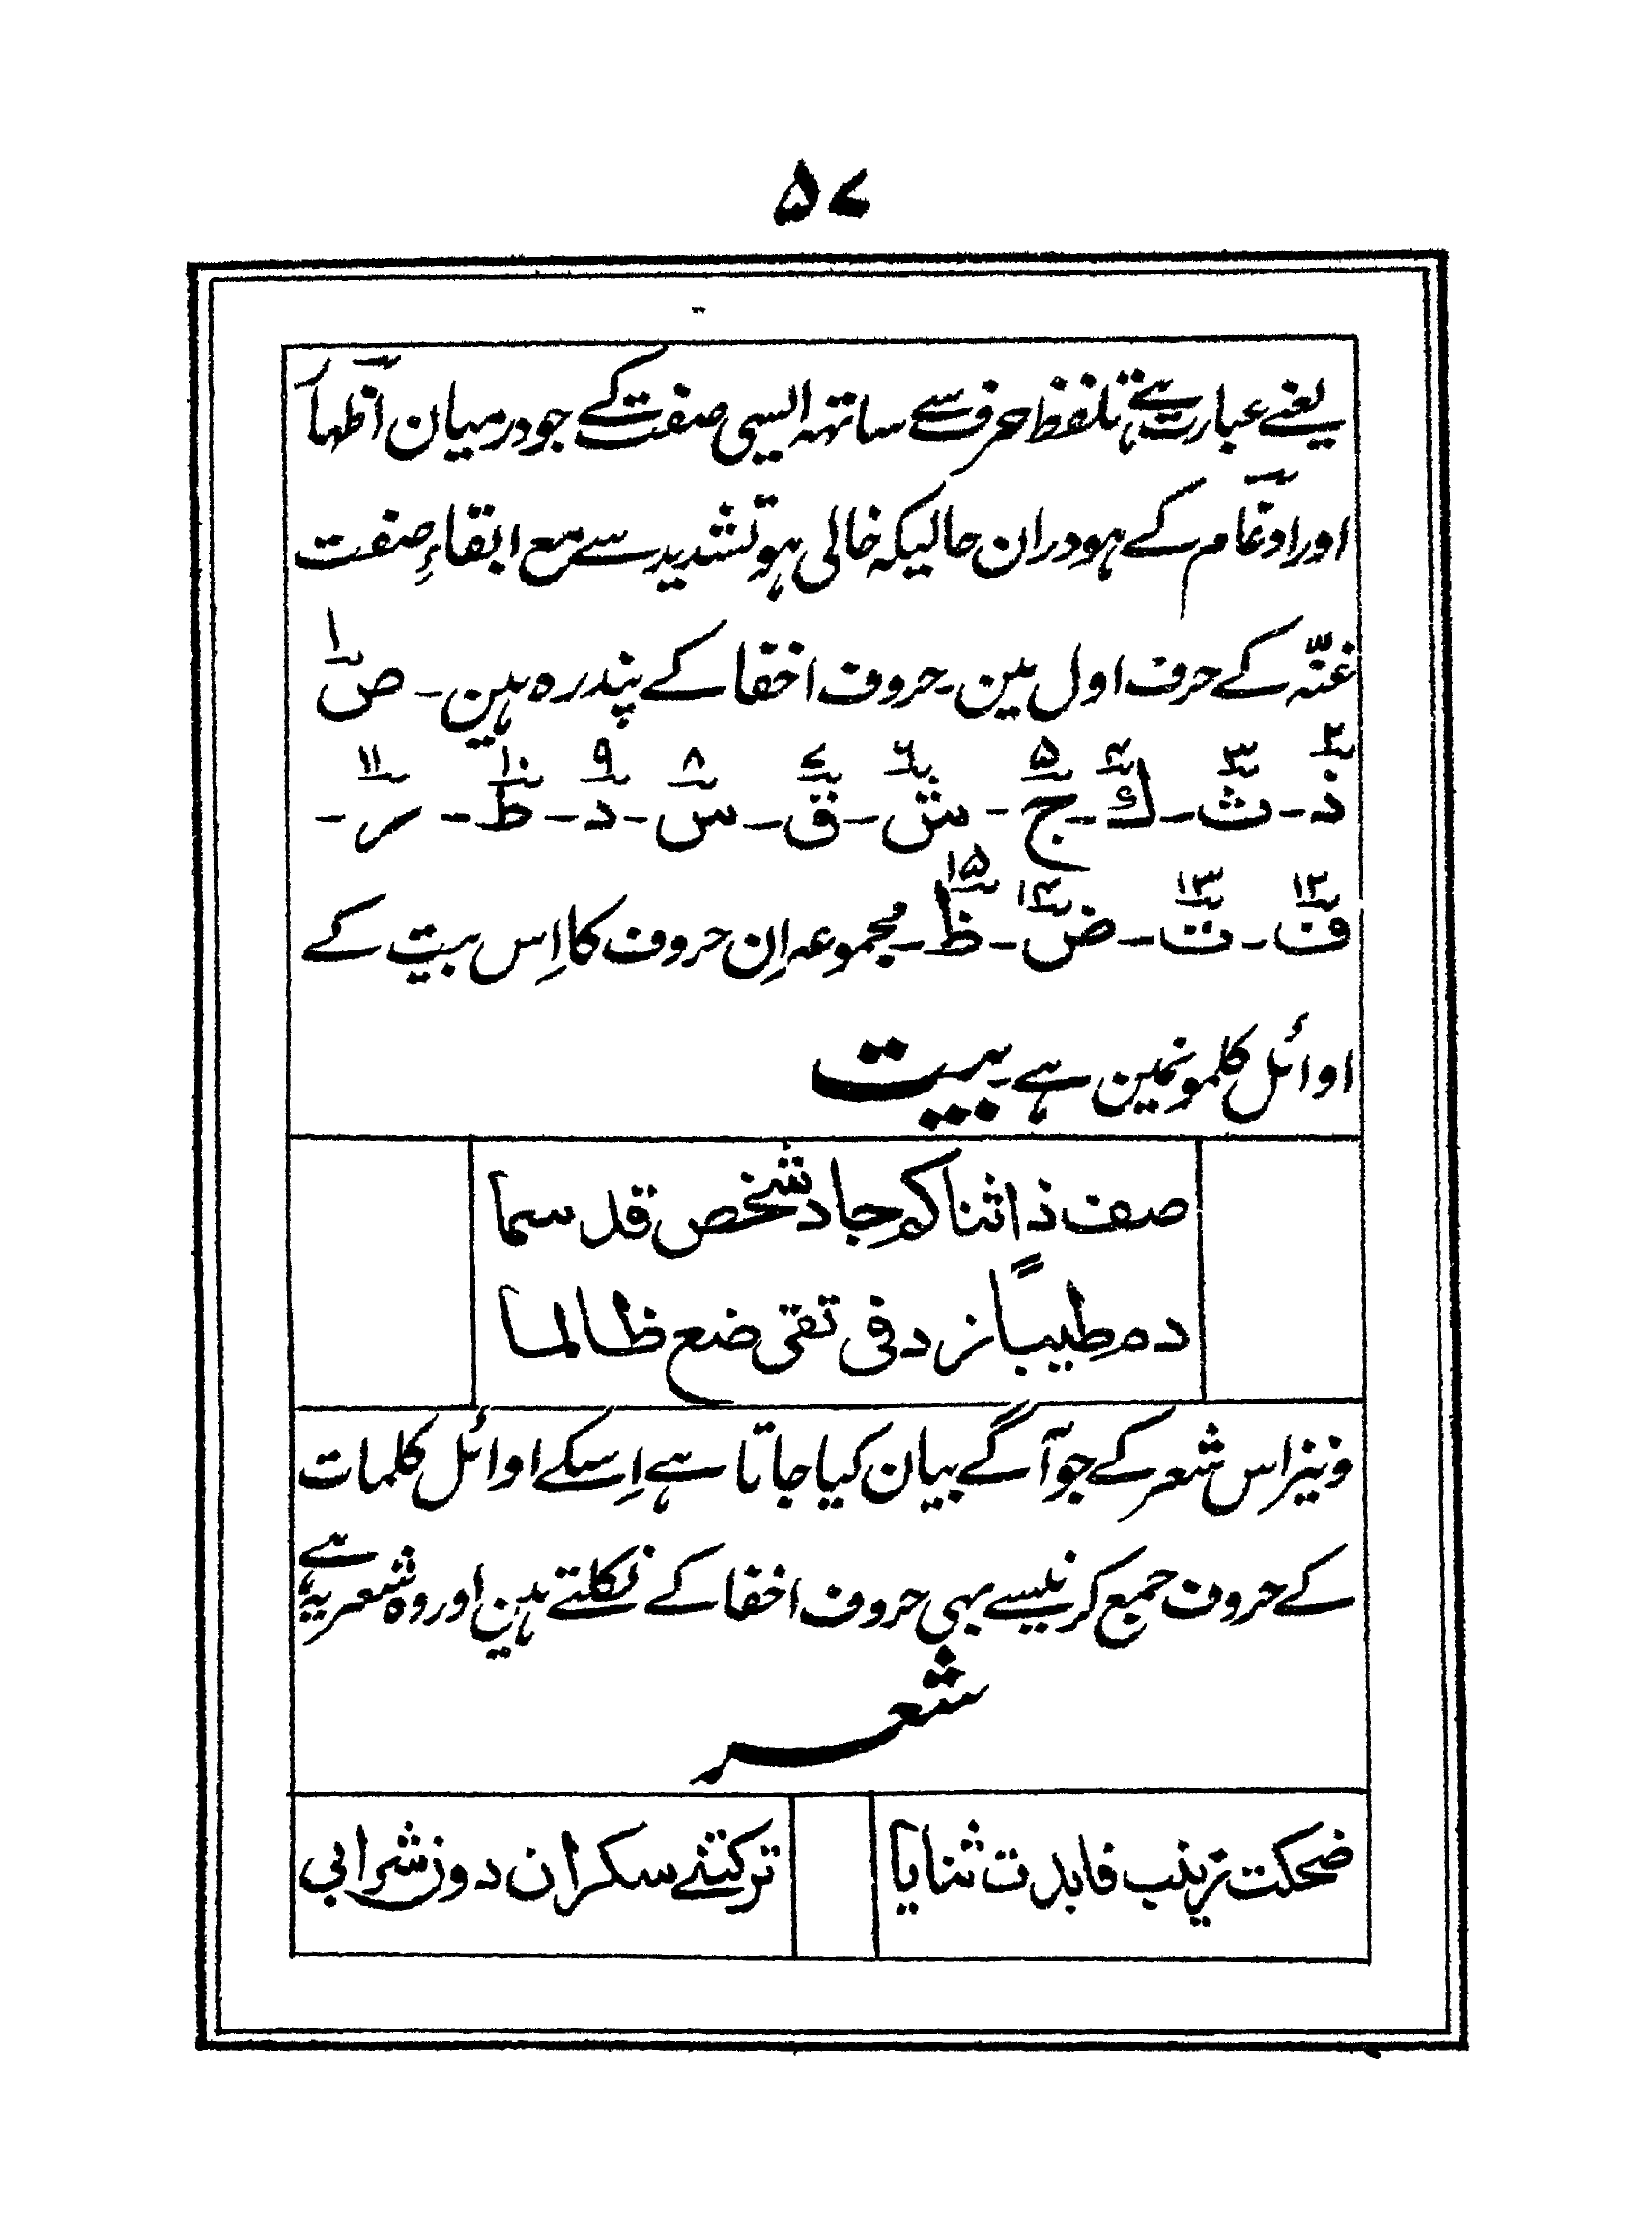 ۵۷
یعنے عبارت ہے تلفظ حرف سے ساتھہ ایسی صفت کے جو درمیان اظہار
اور ادغام کے ہو دران حالیکہ خالی ہو تشدید سے مع ابقاءِ صفت
غنّہ کے حرف اول مین۔ حروف اخفا کے پندرہ ہین۔ ص۱
ذ۲ ۔ ث۳ ۔ ك۴ ۔ ج۵ ۔ ش۶ ۔ ق۷ ۔ س۸ ۔ د۹ ۔ ط۱۰ ۔ ر۱۱ ۔
ف۱۲ ۔ ت۱۳ ۔ ض۱۴ ۔ ظ۱۵ ۔ مجموعہ اِن حروف کا اِس بیت کے
اوائل کلمونمین ہے ۔ بیت
صف ذا ثنا كم جاد شخص قد سما
دم طیباً زد فی تقی ضع ظالما
و نیز اس شعر کے جو آگے بیان کیا جاتا ہے اِسکے اوائل کلمات
کے حروف جمع کرنیسے بہی حروف اخفا کے نکلتے ہین اور وہ شعر یہ ہے
شعر
ضحکت زینب فابدت ثنایا
ترکتنے سکران دون شرابی